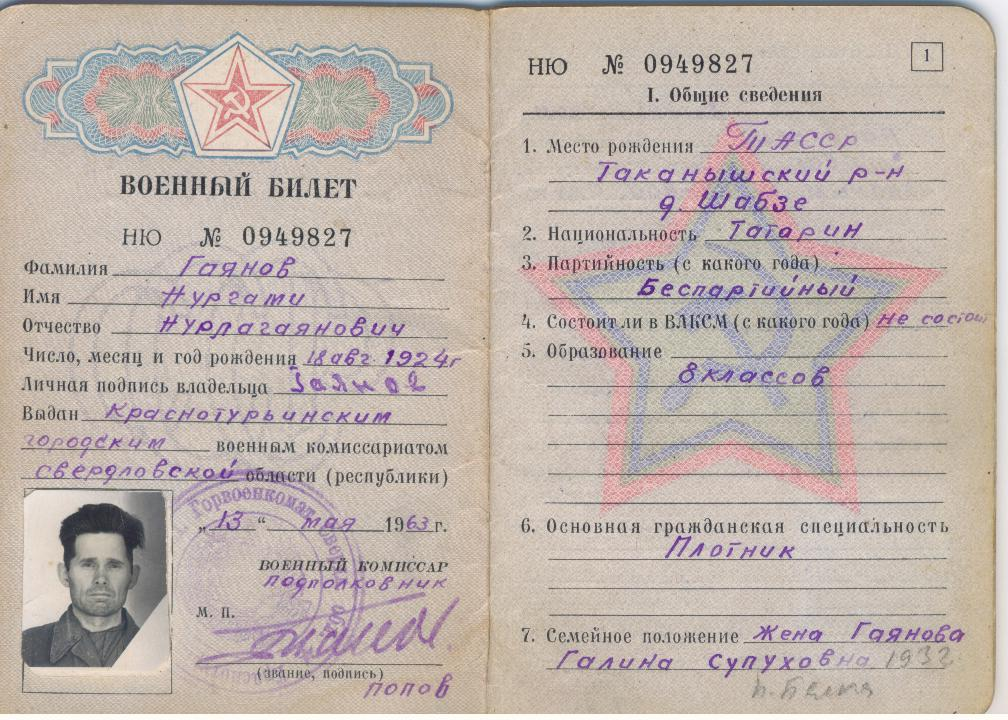 ВОЕННЫЙ БИЛЕТ
НЮ № 0949827
Фамилия Гаянов
Имя Нургати
Отчество Нурлагаянович
Число, месяц и год рождения 18 авг. 1924г
Личная подпись владельца Гаянов
Выдан Краснотурьинским
городским военным комиссариатом
свердловской области (республики)
„13“ мая 1963 г.
ВОЕННЫЙ КОМИССАР
подполковник
М. П.
(звание, подпись)
попов
Горвоенкомат
НЮ № 0949827
1
I. Общие сведения
1. Место рождения ТАССР
Таканышский р-н
д. Шабзе
2. Национальность Татарин
3. Партийность (с какого года)
Беспартийный
4. Состоит ли в ВЛКСМ (с какого года) не состоит
5. Образование
8 классов
6. Основная гражданская специальность
Плотник
7. Семейное положение жена Гаянова
Галина Супуховна 1932